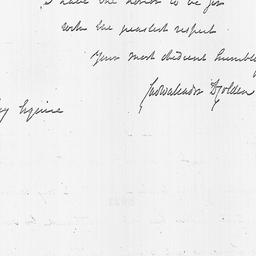 I have the honor to be Sir
with the greatest respect
Your most obedient humble
Cadwalader D Colden
Esquire